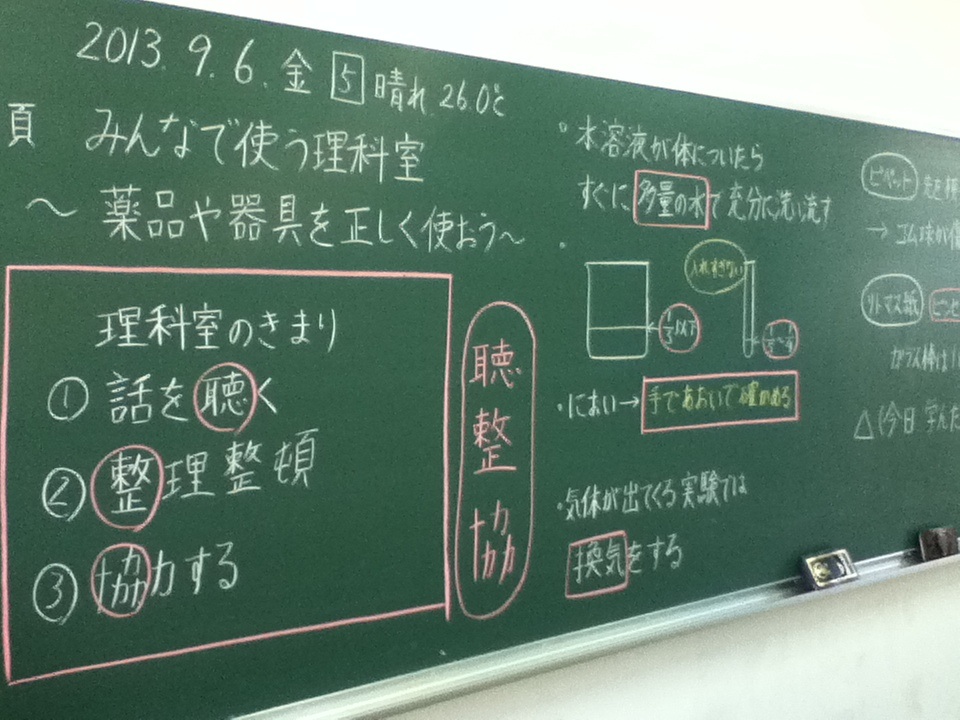 2013. 9. 6. 金 5 晴れ 26.0℃
頁 みんなで使う理科室
〜 薬品や器具を正しく使おう〜
理科室のきまり
① 話を聴く
② 整理整頓
③ 協力する
聴
整
協
・水溶液が体についたら
すぐに多量の水で充分に洗い流す
・
入れすぎない
1/3以下
・におい→手であおいで確かめる
・気体が出てくる実験では
換気をする
ピペット 先を
→ ゴム球が傷
リトマス紙 ピンセ
ガラス棒は
△(今日 学んだ